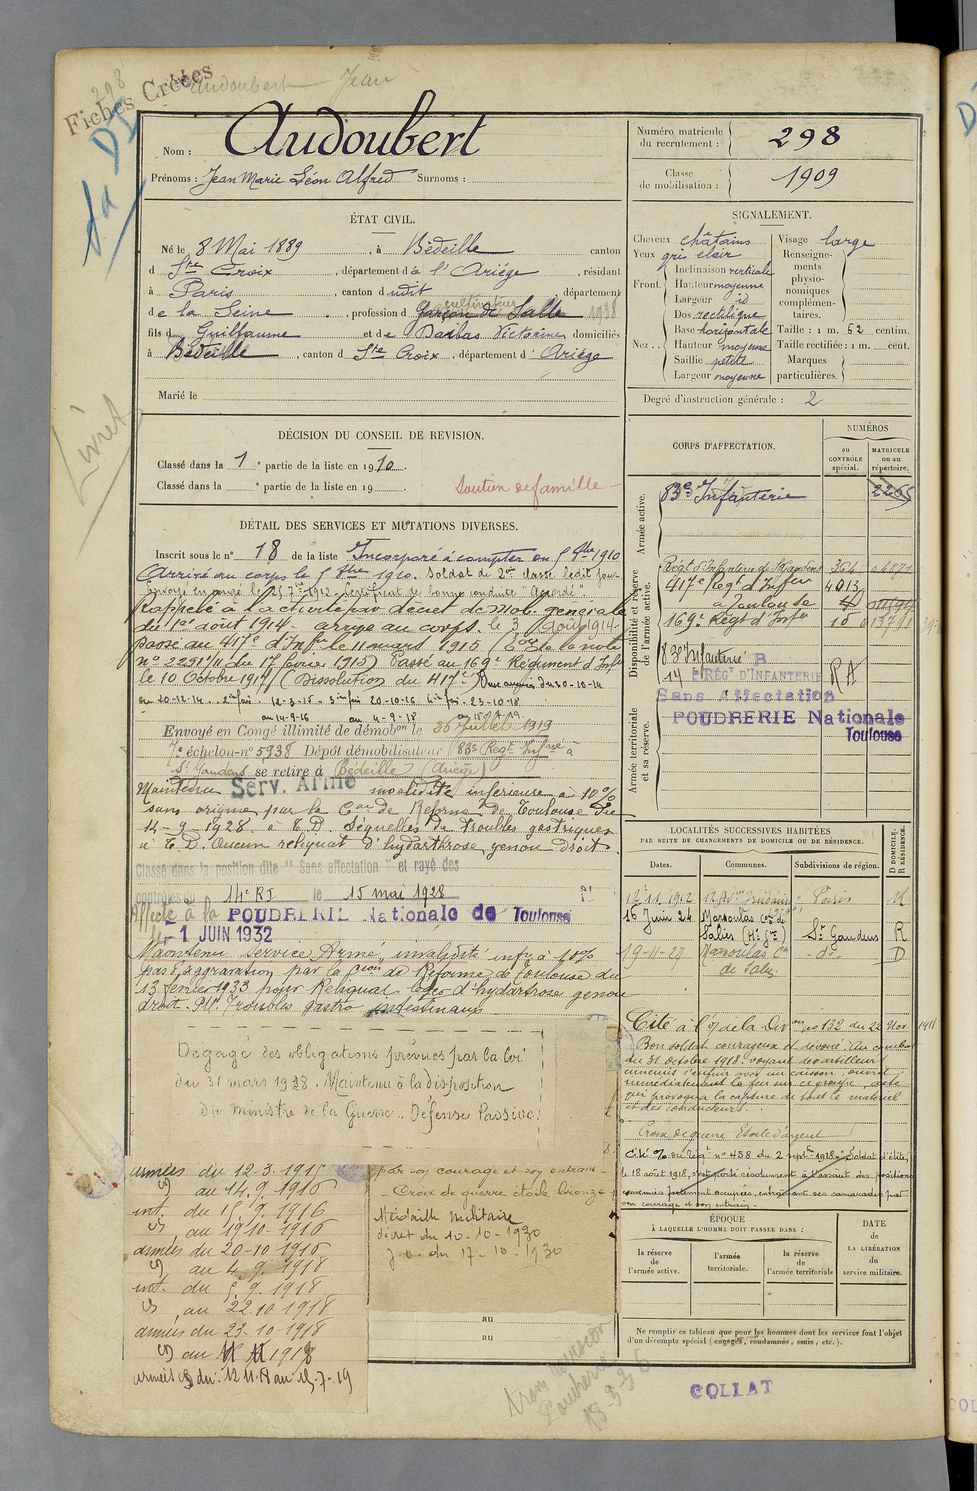 298
Audoubert Jean
Fiches Créées
Nom : Audoubert
Prénoms : Jean Marie Léon Alfred Surnoms :
Numéro matricule du recrutement : 298
Classe de mobilisation : 1909
ÉTAT CIVIL.
Né le 8 Mai 1889, à Bédeille canton
d Ste Croix, département de l'Ariège, résidant
à Paris, canton dudit département
de la Seine, profession de Garçon de Salle cultivateur 1938
fils de Guillaume et de Barbas Victorine domiciliés
à Bédeille, canton d Ste Croix, département d' Ariège
Marié le
SIGNALEMENT.
Cheveux châtains
Yeux gris clair
Front. Inclinaison verticale
Hauteur moyenne
Largeur id
Nez.. Dos rectiligne
Base horizontale
Hauteur moyenne
Saillie petite
Largeur moyenne
Visage large
Renseignements physionomiques complémentaires.
Taille : 1 m. 62 centim.
Taille rectifiée : 1 m. cent.
Marques particulières.
Degré d'instruction générale : 2
Livret
DÉCISION DU CONSEIL DE REVISION.
Classé dans la 1e partie de la liste en 1910.
Classé dans la e partie de la liste en 19
Soutien de famille
DÉTAIL DES SERVICES ET MUTATIONS DIVERSES.
Inscrit sous le n° 18 de la liste Incorporé à compter du 5 8bre 1910
Arrivé au corps le 5 8bre 1910. Soldat de 2me classe ledit jour
Envoyé en congé le 25 7bre 1912. Certificat de bonne conduite "Accordé".
Rappelé à l'activité par décret de mob. générale
du 1er août 1914. arrivé au corps le 3 Août 1914
Passé au 417e d'Infie le 11 mars 1915
n° 2291/11 du 17 février 1915) Passé au 169e Régiment d'Infie
le 10 Octobre 1917 (Dissolution du 417e)
au 14-9-16 au 4-9-18
Envoyé en Congé illimité de démobon le 30 Juillet 1919
7e échelon n° 5938 Dépôt démobilisateur 83e Regt Infrie à
St Gaudens se retire à Bédeille (Ariège)
Maintenu Serv. Armé invalidité inférieure à 10%
sans origine par la Con de Réforme de Toulouse du
14-9-1928, à T.D. Séquelles de troubles gastriques
à T.D. Aucun reliquat d'hydarthrose genou droit.
Classé dans la position dite "Sans affectation" et rayé des
contrôles du 14e RI le 15 mai 1928
Affecté à la POUDRERIE Nationale de Toulouse
le 1 JUIN 1932
Maintenu service Armé, invalidité infre à 10%
pas d'aggravation par la Cion de Réforme de Toulouse du
13 février 1933 pour Reliquat léger d'hydarthrose genou
droit. Troubles gastro intestinaux
Dégagé des obligations prévues par la loi
du 31 mars 1928. Maintenu à la disposition
du ministre de la Guerre. Défense Passive.
armées du 12.3.1915
au 14.9.1916
int. du 15.9.1916
au 19.10.1916
armées du 20-10-1916
au 4.9.1918
int. du 5.9.1918
au 22.10.1918
armées du 23-10-1918
au 11 11 1918
armées du : 12.11.18 au 15-7-19
par son courage et son entrain -
Croix de guerre étoile bronze
Médaille militaire
décret du 10-10-1930
J.O. du 17-10-1930
au
au
CORPS D'AFFECTATION.
NUMÉROS
au CONTRÔLE spécial.
MATRICULE ou au répertoire.
Armée active.
83e Infanterie 2265
Disponibilité et réserve de l'armée active.
Regt d'Infanterie de St Gaudens 354
417e Regt d'Infie à Toulouse 4013
169e Régt d'Infie 10
83e Infanterie
14 RÉGt D'INFANTERIE RA
Sans Affectation
POUDRERIE Nationale
Toulouse
Armée territoriale et sa réserve.
LOCALITÉS SUCCESSIVES HABITÉES
PAR SUITE DE CHANGEMENTS DE DOMICILE OU DE RÉSIDENCE.
Dates. Communes. Subdivisions de région. D DOMICILE. R RÉSIDENCE.
12.11.1912 Paris
16 Juin 24 Marsoulas Con de Salies (Hte Gne) St Gaudens R
19-11-27 Marsoulas Con de Salies - do - D
Cité à l'O/ de la Divon n° 132 du 22 Nov. 1918
Bon soldat courageux et dévoué. Au combat
du 31 octobre 1918, voyant des artilleurs
ennemis s'enfuir avec un caisson, ouvrit
immédiatement le feu sur ce groupe, acte
qui provoqua la capture de tout le matériel
et des conducteurs.
Croix de guerre Etoile d'argent
Cité O/ du Régt n° 458 du 2 septbre 1918 - Soldat d'élite,
le 18 août 1918, s'est porté résolument à l'assaut des positions
ennemies fortement occupées, entraînant ses camarades par
son courage et son entrain -
ÉPOQUE
À LAQUELLE L'HOMME DOIT PASSER DANS :
la réserve de l'armée active.
l'armée territoriale.
la réserve de l'armée territoriale
DATE de LA LIBÉRATION du service militaire.
Ne remplir ce tableau que pour les hommes dont les services font l'objet
d'un décompte spécial (engagés, condamnés, omis, etc.).
COLLAT